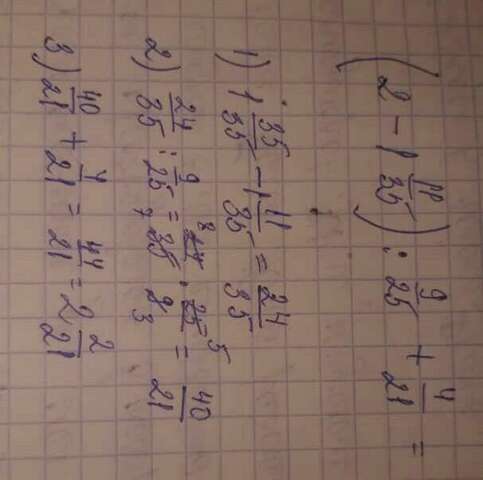 (2 - 1 11/35) : 9/25 + 4/21 =
1) 1 35/35 - 1 11/35 = 24/35
2) 24/35 : 9/25 = 24/35 · 25/9 = 40/21
3) 40/21 + 4/21 = 44/21 = 2 2/21